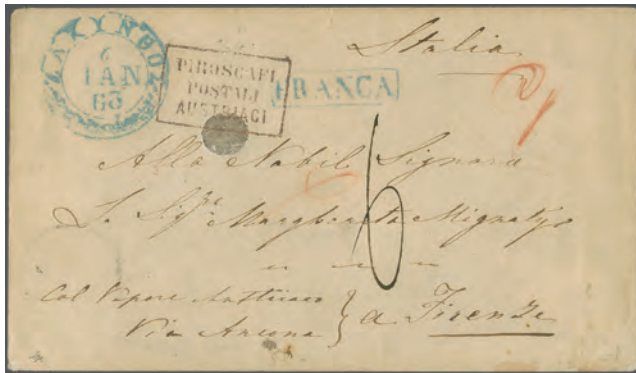 ΖΑΚΥΝΘΟΣ
6
ΙΑΝ
65
PIROSCAFI
POSTALI
AUSTRIACI
FRANCA
Italia
6
Alla Nobil Signora
La Sigra Margherita Mignaty
Col Vapore Austriaco
Via Ancona } a Firenze